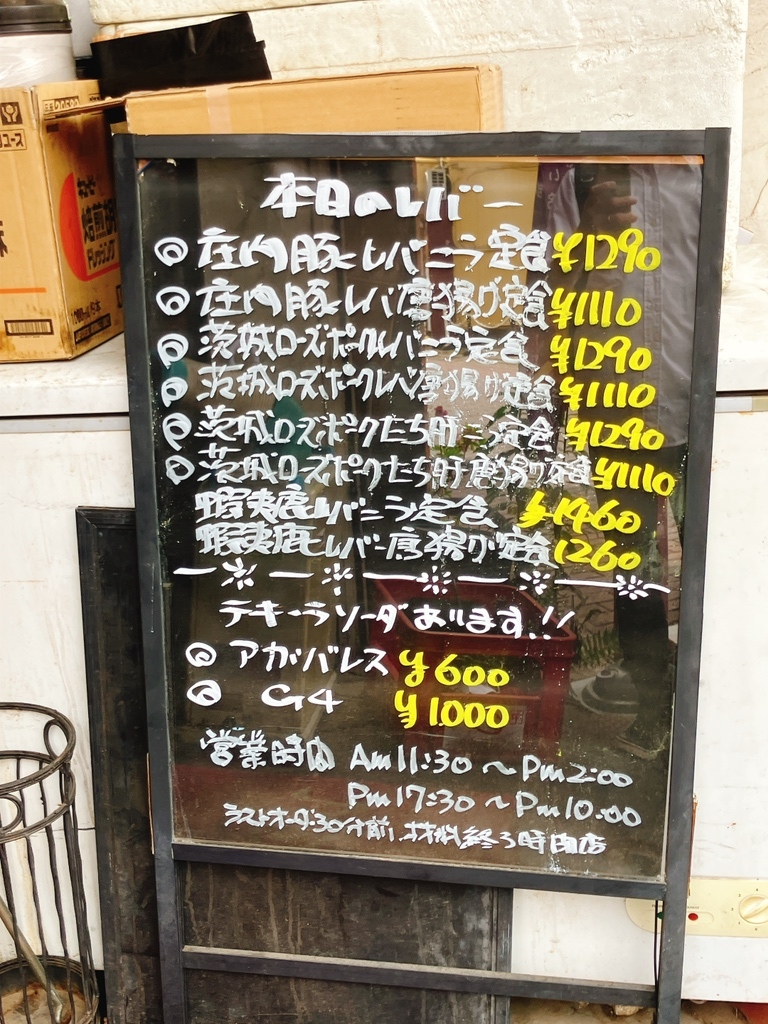 本日のレバー
◎ 庄内豚レバニラ定食 ¥1290
◎ 庄内豚レバ唐揚げ定食 ¥1110
◎ 茨城ローズポークレバニラ定食 ¥1290
◎ 茨城ローズポークレバ唐揚げ定食 ¥1110
◎ 茨城ローズポークたち肝ニラ定食 ¥1290
◎ 茨城ローズポークたち肝唐揚げ定食 ¥1110
蝦夷鹿レバニラ定食 ¥1460
蝦夷鹿レバー唐揚げ定食 1260
テキーラソーダあります!!
◎ アガバレス ¥600
◎ G4 ¥1.000
営業時間 Am11:30 〜 Pm2:00
Pm17:30 〜 Pm10:00
ラストオーダー30分前、材料終了時閉店
キユーピー
焙煎胡麻
ドレッシング